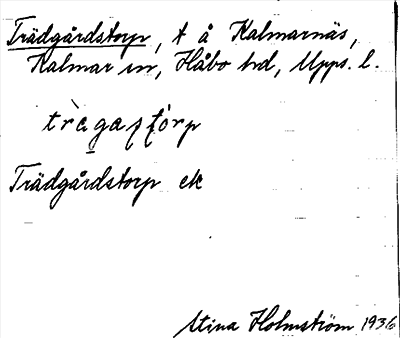 Trädgårdstorp, t å Kalmarnäs,
Kalmar sn, Håbo hd, Upps. l.
Trädgårdstorp ek
Stina Holmström 1936